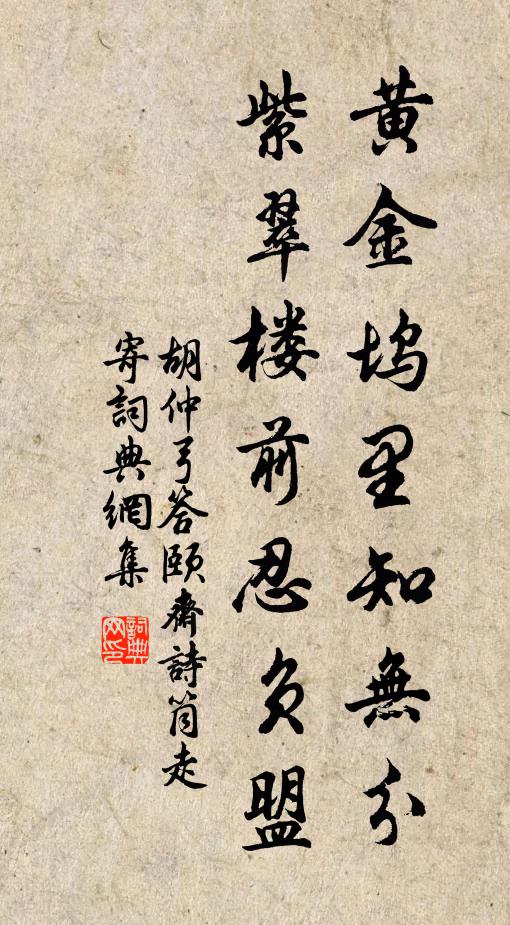 黄金坞里知無分
紫翠楼前忍负盟
胡仲弓答頤齋詩筒走
寄詞典網集
詞典网印